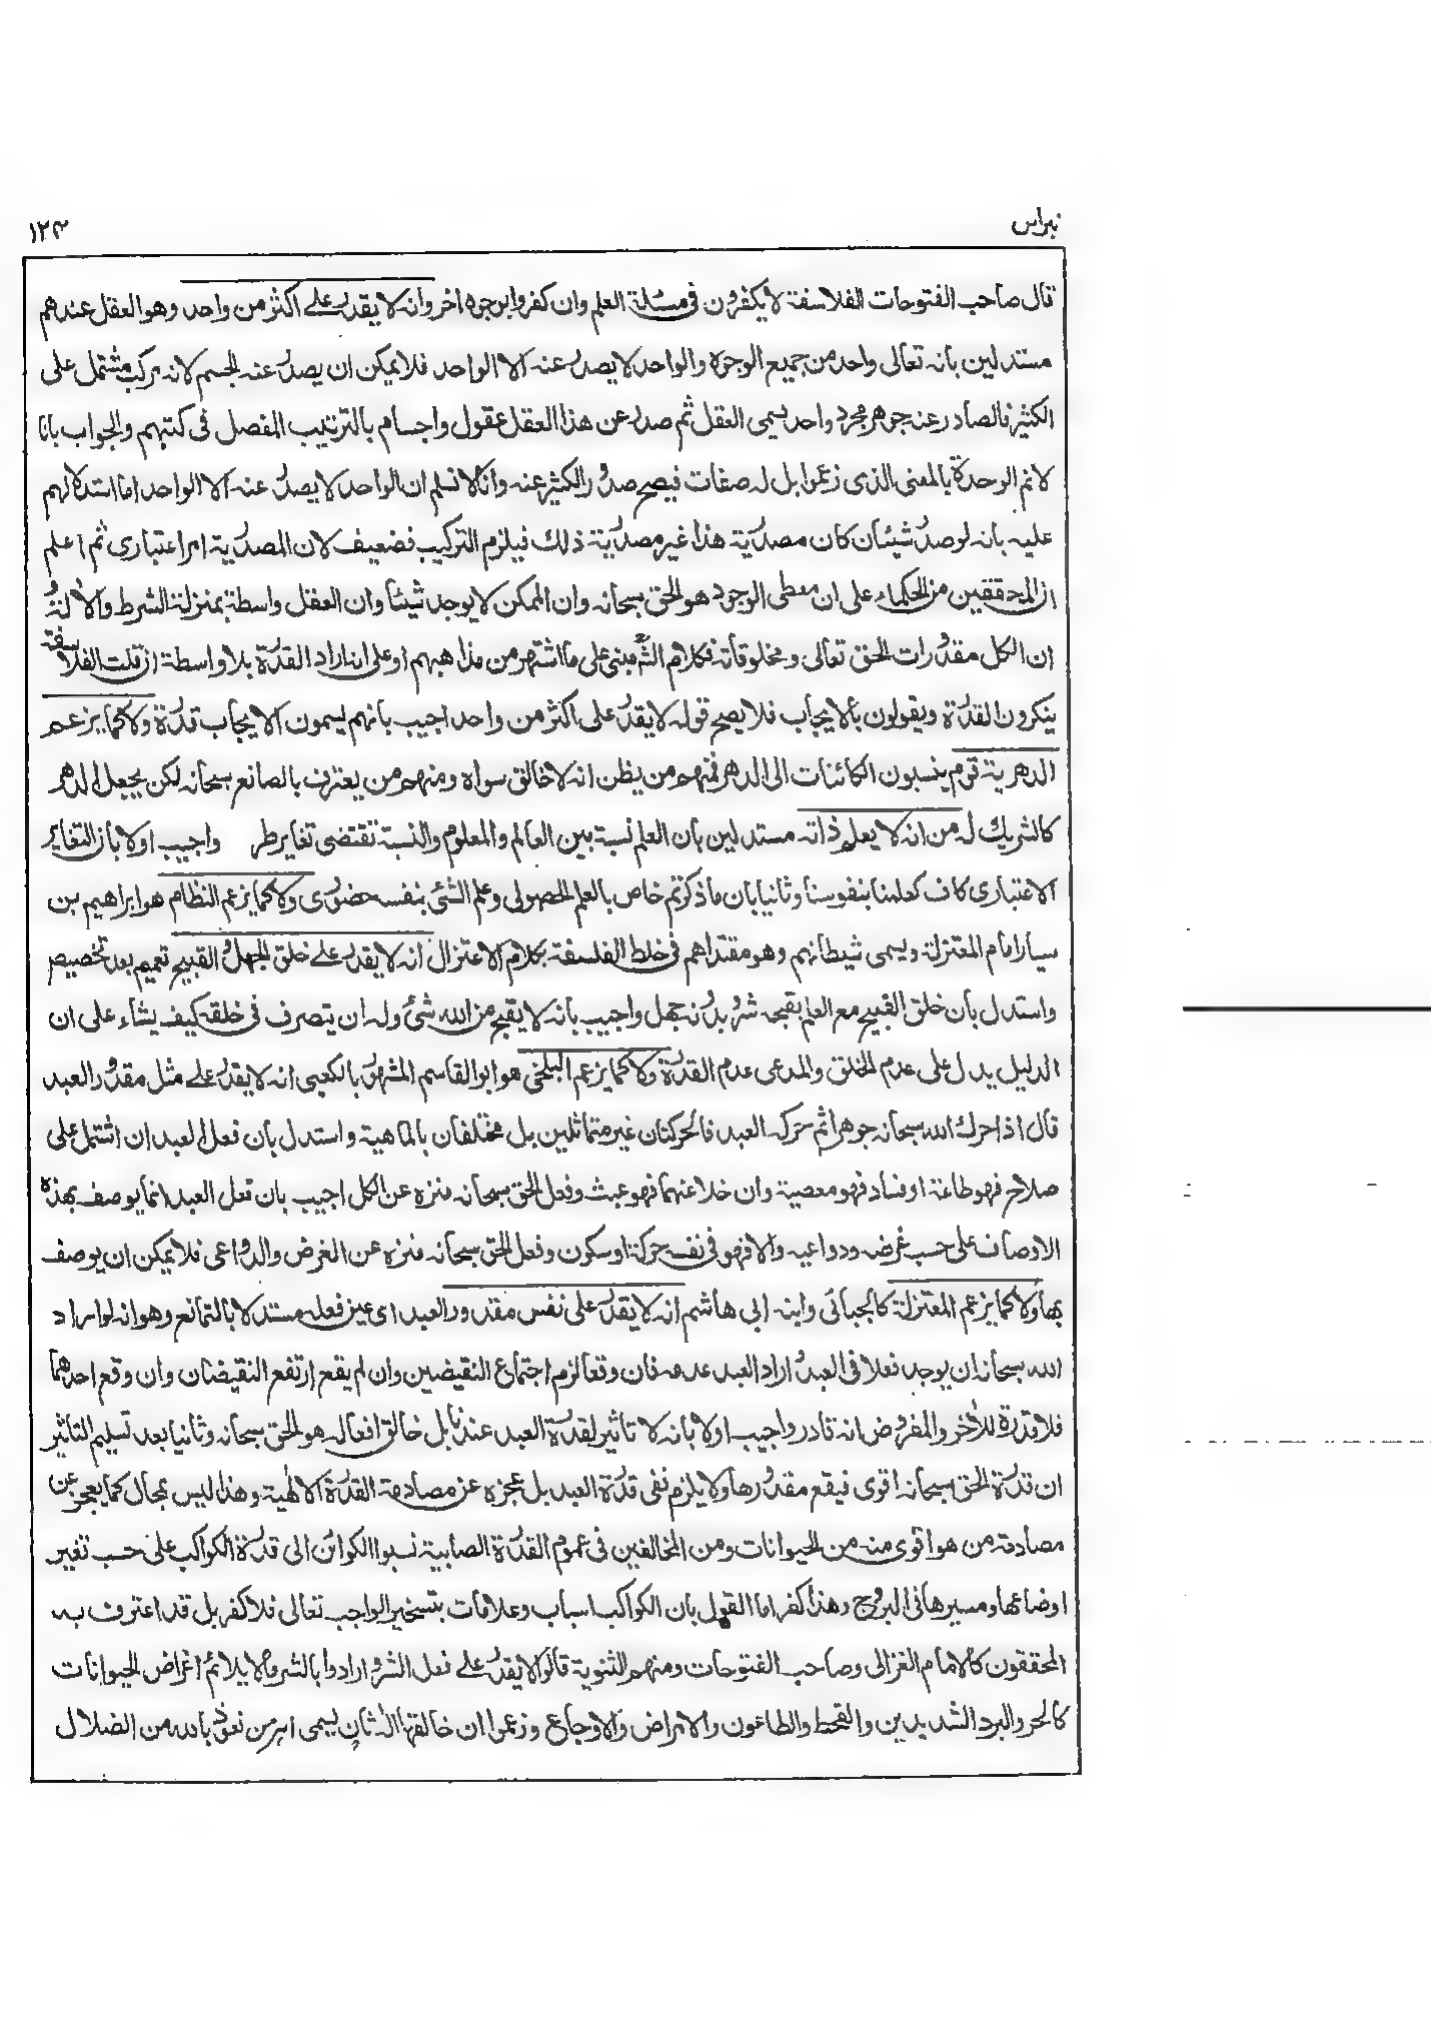 نبراس
١٢٣
قال صاحب الفتوحات الفلاسفة لا يكفرون فى مسئلة العلم وان كفروا بوجوه اخر وانه لا يقدر على اكثر من واحد وهو العقل عندهم
مستدلين بانه تعالى واحد من جميع الوجوه والواحد لا يصدر عنه الا الواحد فلا يمكن ان يصدر عنه الجسم لانه مركب مشتمل على
الكثير فالصادر عنه جوهر مجرد واحد يسمى العقل ثم صدر عن هذا العقل عقول واجسام بالترتيب المفصل فى كتبهم والجواب بانا
لانم الوحدة بالمعنى الذى زعموا بل له صفات فيصح صدور الكثير عنه وانا لا نسلم ان الواحد لا يصدر عنه الا الواحد اما استدلالهم
عليه بانه لو صدر شيئان كان مصدرية هذا غير مصدرية ذلك فيلزم التركيب فضعيف لان المصدرية امر اعتبارى ثم اعلم
ان المحققين من الحكماء على ان معطى الوجود هو الحق سبحانه وان الممكن لا يوجد شيئا وان العقل واسطة بمنزلة الشرط والألة و
ان الكل مقدورات الحق تعالى ومخلوقاته فكلام الش مبنى على ما اشتهر من مذاهبهم او على انه اراد القدرة بلا واسطة ان قلت الفلاسفة
ينكرون القدرة ويقولون بالايجاب فلا يصح قوله لا يقدر على اكثر من واحد اجيب بانهم يسمون الايجاب قدرة ولا كما يزعم
الدهرية قوم ينسبون الكائنات الى الدهر فمنهم من يظن انه لا خالق سواه ومنهم من يعترف بالصانع سبحانه لكن يجعل الدهر
كالشريك له من انه لا يعلم ذاته مستدلين بان العلم نسبة بين العالم والمعلوم والنسبة تقتضى تغاير طر واجيب اولا بان التغاير
الاعتبارى كاف كعلمنا بنفوسنا وثانيا بان ما ذكرتم خاص بالعلم الحصولى وعلم الشئ بنفسه حضورى ولا كما يزعم النظام هو ابراهيم بن
سيار امام المعتزلة ويسمى شيطانهم وهو مقتداهم فى خلط الفلسفة بكلام الاعتزال انه لا يقدر على خلق الجهل والقبيح تعميم بعد تخصيص
واستدل بان خلق القبيح مع العلم بقبحه شر وبدونه جهل واجيب بانه لا يقبح من الله شئ وله ان يتصرف فى خلقه كيف يشاء على ان
الدليل يدل على عدم الخلق والمدعى عدم القدرة ولا كما يزعم البلخى هو ابو القاسم المشهور بالكعبى انه لا يقدر على مثل مقدور العبد
قال اذا حرك الله سبحانه جوهرا ثم حركه العبد فالحركتان غير متماثلين بل مختلفان بالماهية واستدل بان فعل العبد ان اشتمل على
صلاح فهو طاعة او فساد فهو معصية وان خلا عنهما فهو عبث وفعل الحق سبحانه منزه عن الكل اجيب بان فعل العبد انما يوصف بهذه
الاوصاف على حسب غرضه ودواعيه والا فهو فى نفسه حركة او سكون وفعل الحق سبحانه منزه عن الغرض والدواعى فلا يمكن ان يوصف
بها ولا كما يزعم المعتزلة كالجبائى وابنه ابى هاشم انه لا يقدر على نفس مقدور العبد اى عين فعله مستدلا بالتمانع وهو انه لو اراد
الله سبحانه ان يوجد فعلا فى العبد و اراد العبد عدمه فان وقعا لزم اجتماع النقيضين وان لم يقع ارتفع النقيضان وان وقع احدهما
فلا قدرة للأخر والمفروض انه قادر واجيب اولا بانه لا تاثير لقدرة العبد عندنا بل خالق افعاله هو الحق سبحانه وثانيا بعد تسليم التاثير
ان قدرة الحق سبحانه اقوى فيقع مقدورها ولا يلزم نفى قدرة العبد بل عجزه عن مصادمة القدرة الالهية وهذا ليس بمحال كما يعجز عن
مصادمة من هو اقوى منه من الحيوانات ومن المخالفين فى عموم القدرة الصابية نسبوا الكوائن الى قدرة الكواكب على حسب تغير
اوضاعها ومسيرها فى البروج وهذا كفر اما القول بان الكواكب اسباب وعلامات بتسخير الواجب تعالى فلا كفر بل قد اعترف به
المحققون كالامام الغزالى وصاحب الفتوحات ومنهم الثنوية قالوا لا يقدر على فعل الشر و ارادوا بالشر ما لا يلائم اغراض الحيوانات
كالحر والبرد الشديدين والقحط والطاعون والامراض والاوجاع وزعموا ان خالقها اله ثان يسمى اهرمن نعوذ بالله من الضلال